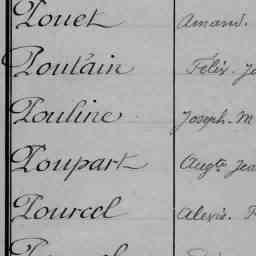 Pouet Amand.
Poulain Félix. Jo
Pouline Joseph. M
Poupart Augte Jea
Pourcel Alexis. F